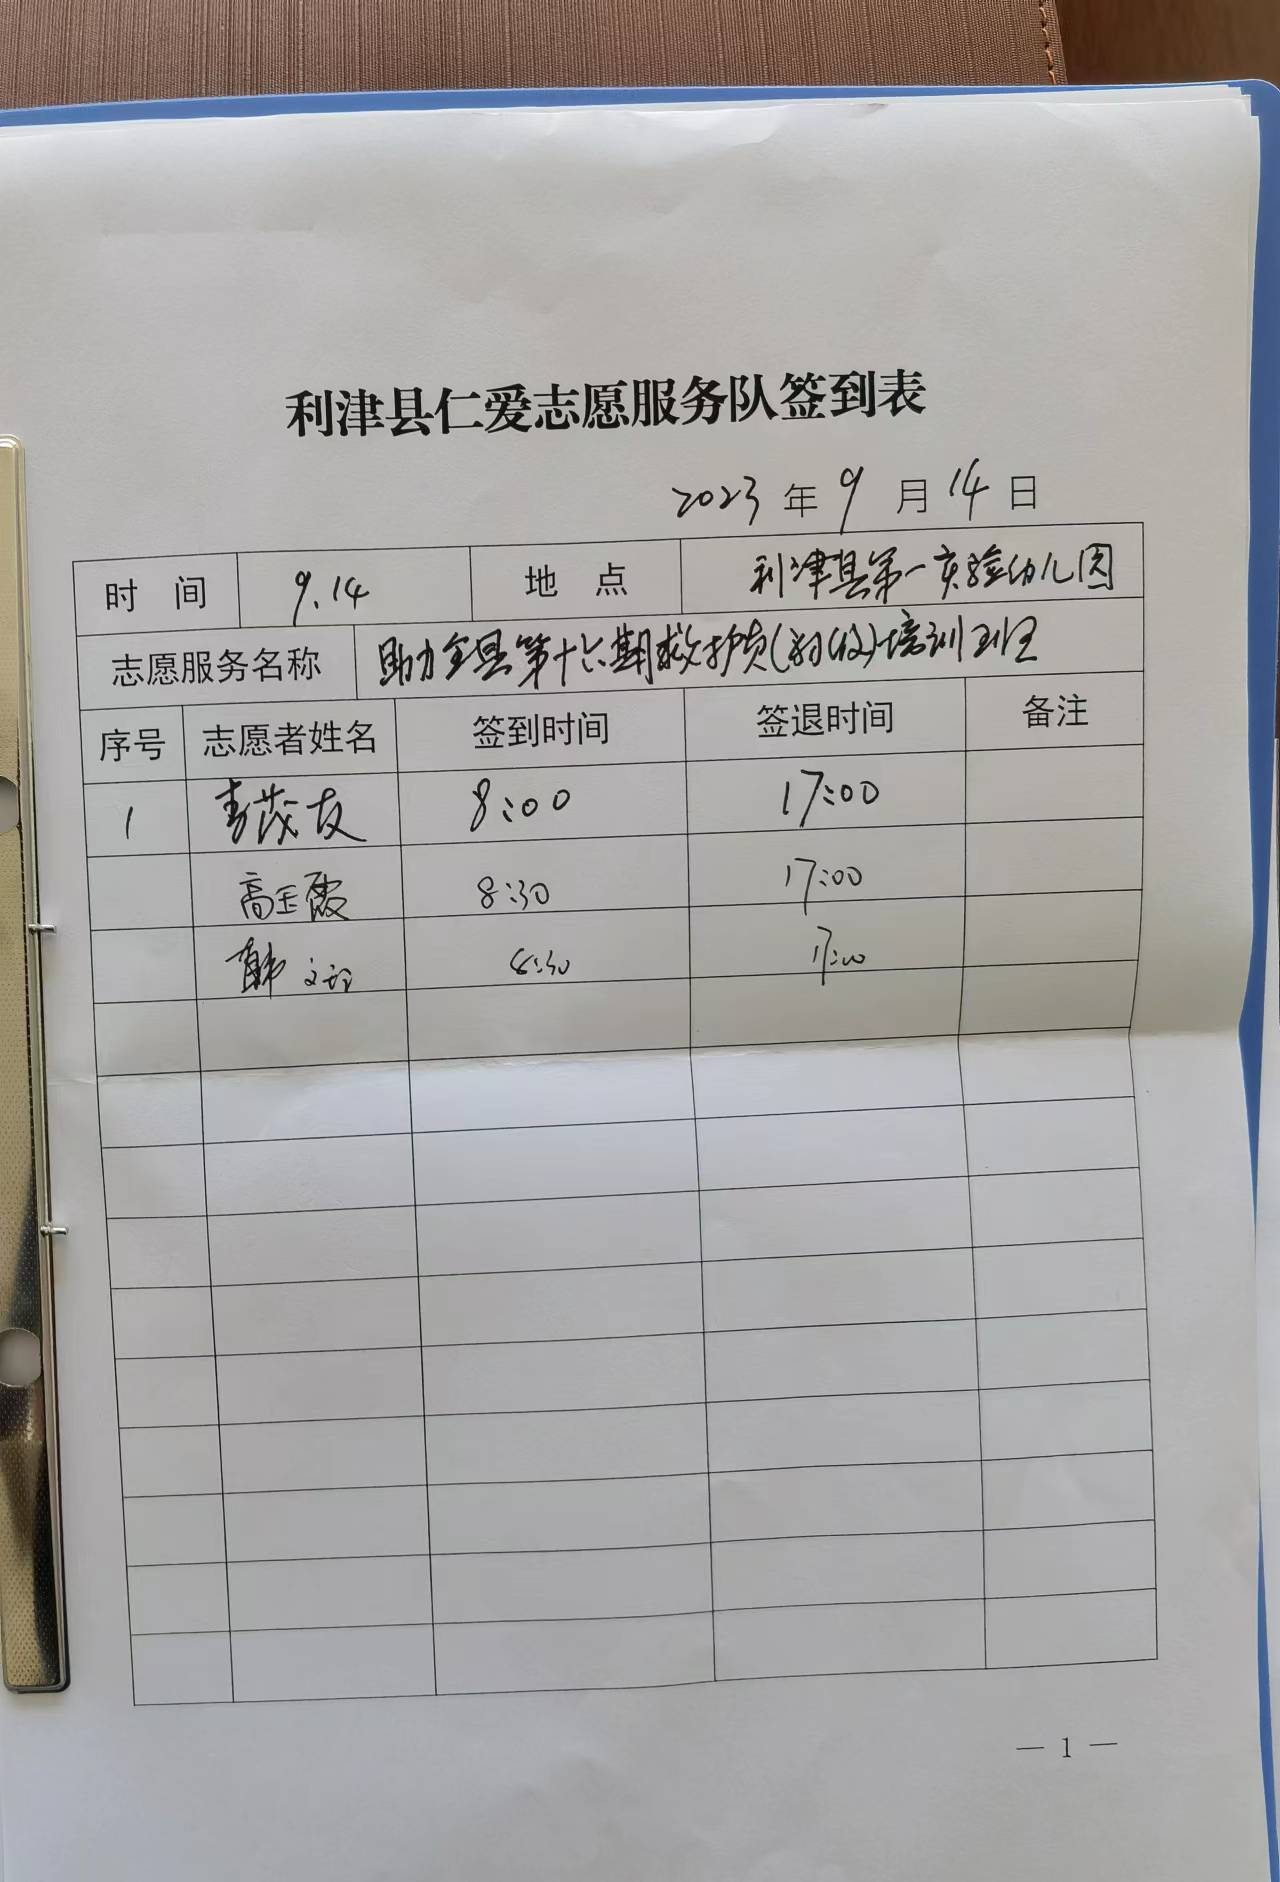 利津县仁爱志愿服务队签到表
2023年9月14日
时 间 9.14 地 点 利津县第一实验幼儿园
志愿服务名称 助力全县第十六期救护员(初级)培训班
序号 志愿者姓名 签到时间 签退时间 备注
1 茂友 8:00 17:00
高玉霞 8:30 17:00
韩文 8:30 17:00
— 1 —